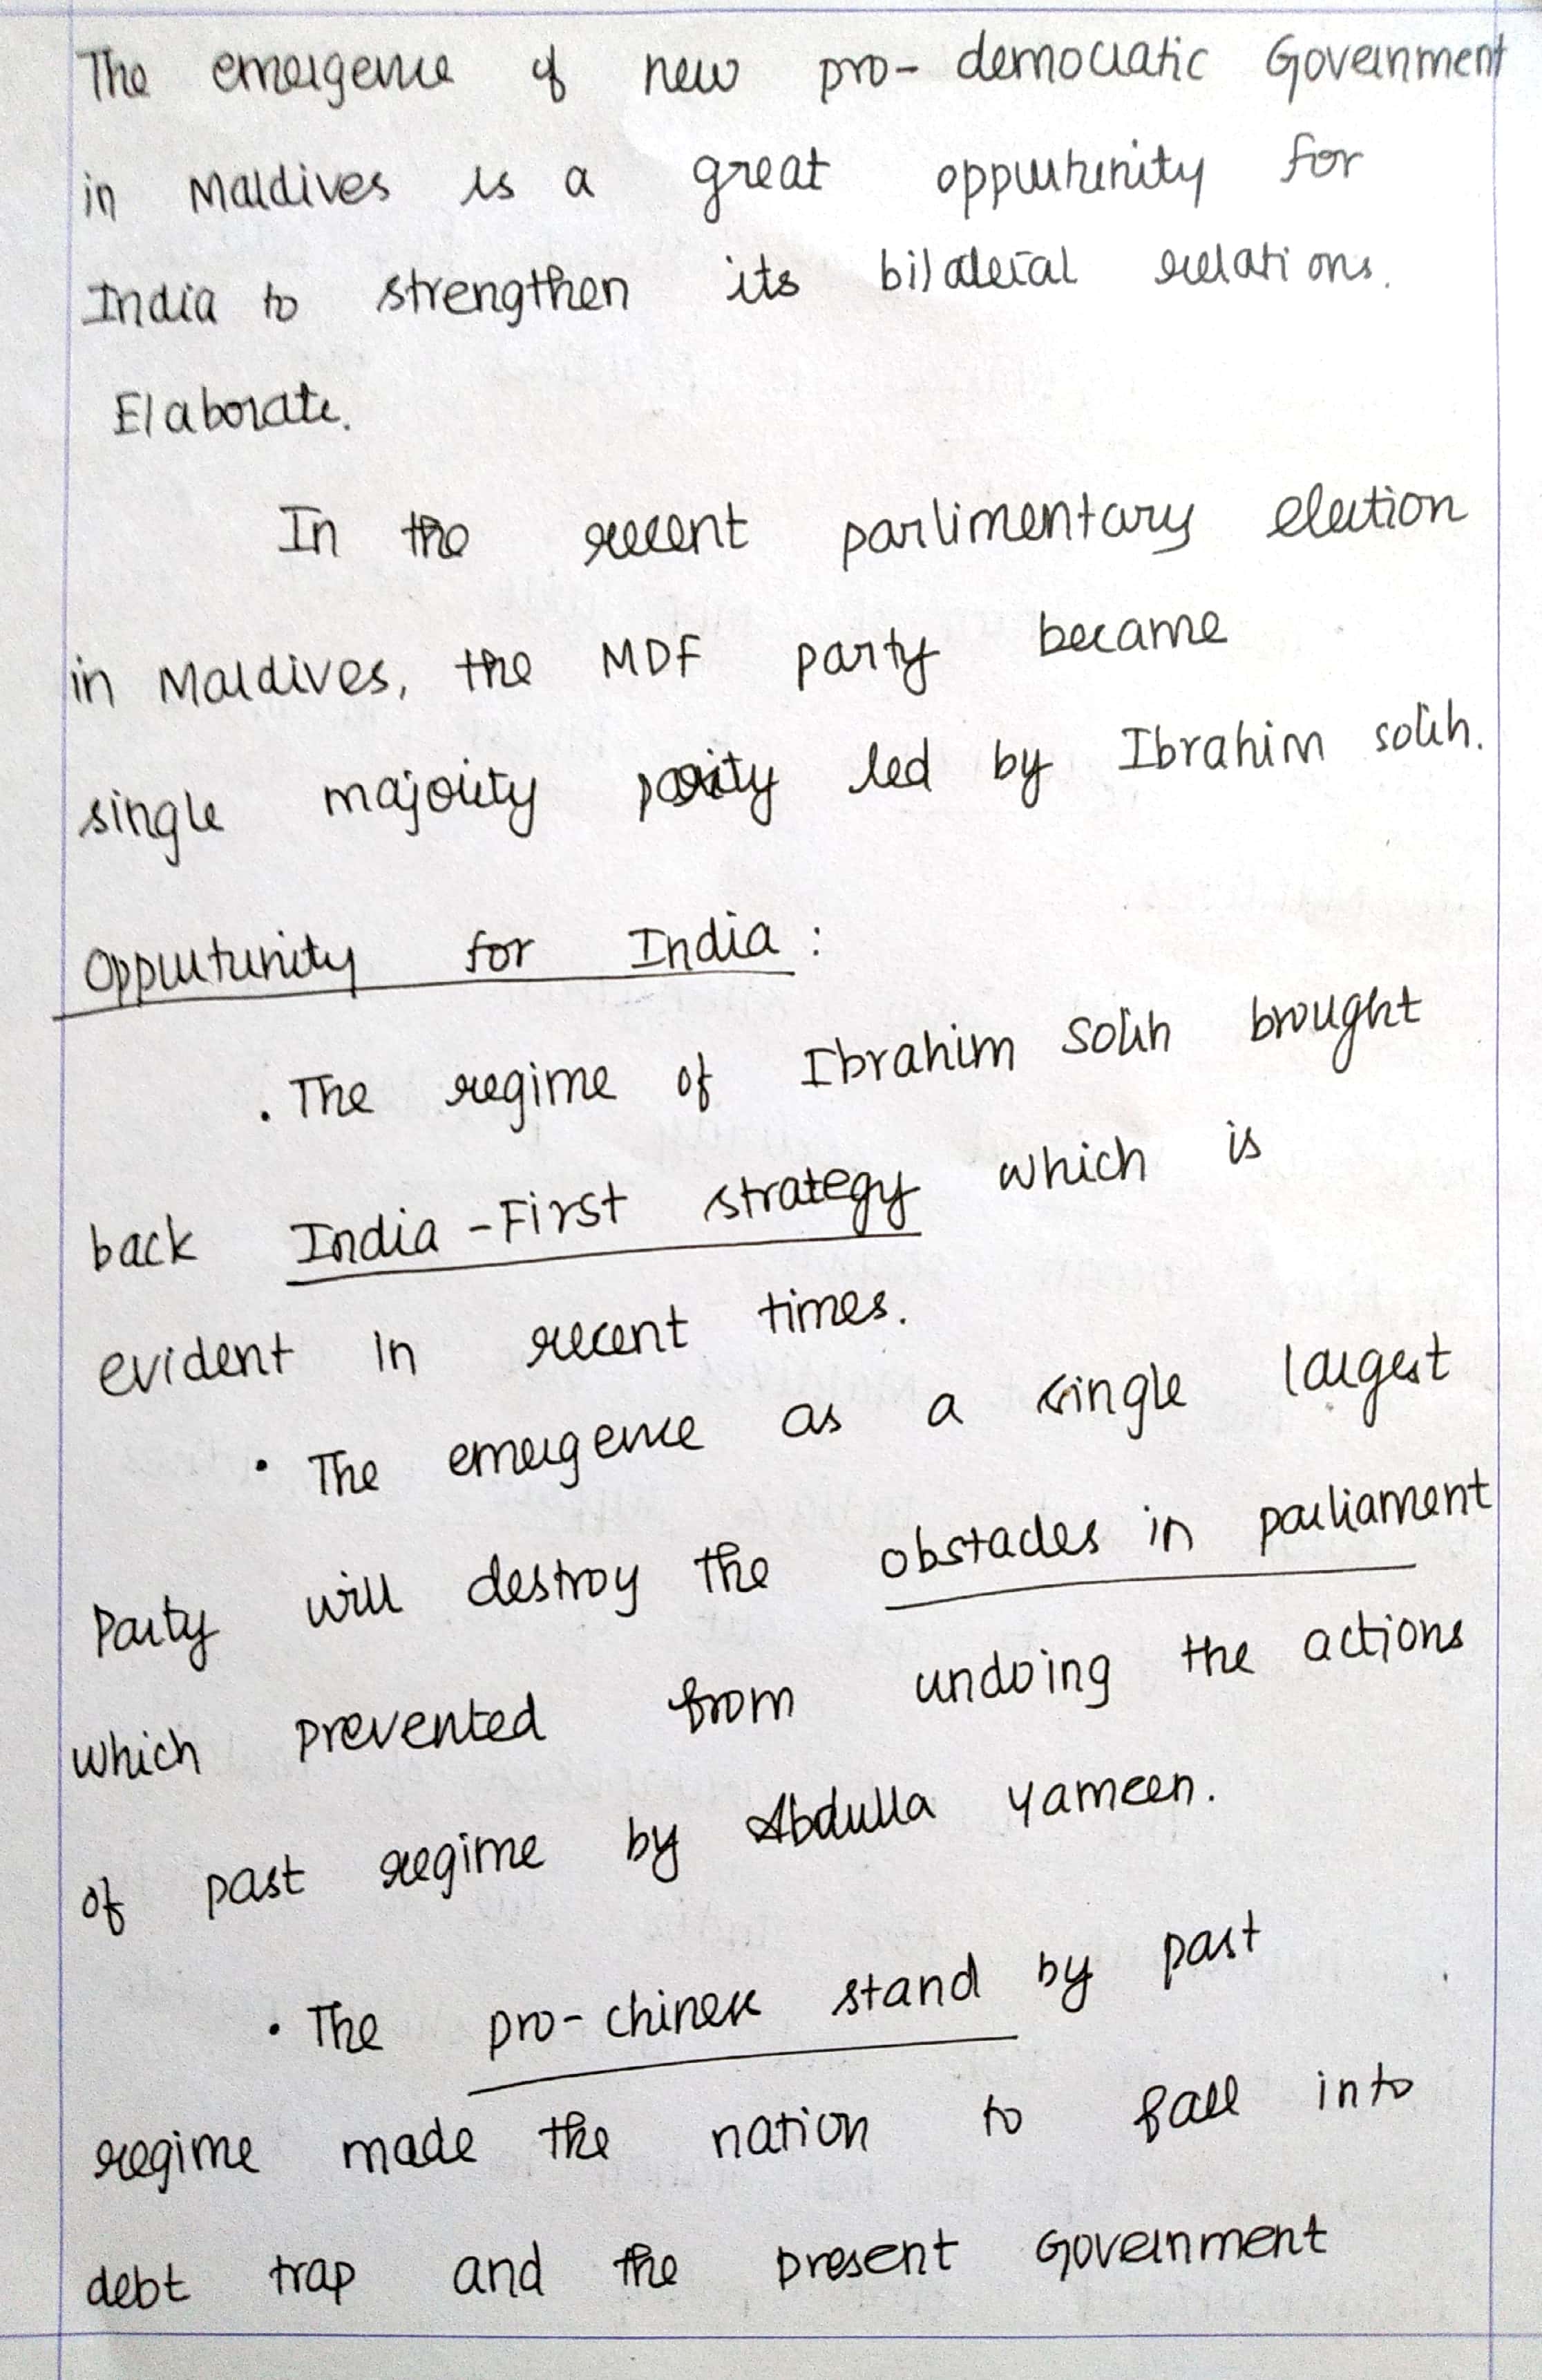 The emergence of new pro-democratic Government
in Maldives is a great oppurtunity for
India to strengthen its bilateral relations.
Elaborate.
In the recent parlimentary election
in Maldives, the MDF party became
single majority party led by Ibrahim solih.
Oppurtunity for India :
. The regime of Ibrahim Solih brought
back India-First strategy which is
evident in recent times.
• The emergence as a single largest
Party will destroy the obstacles in parliament
which prevented from undoing the actions
of past regime by Abdulla Yameen.
• The pro-chinese stand by past
regime made the nation to fall into
debt trap and the present Government